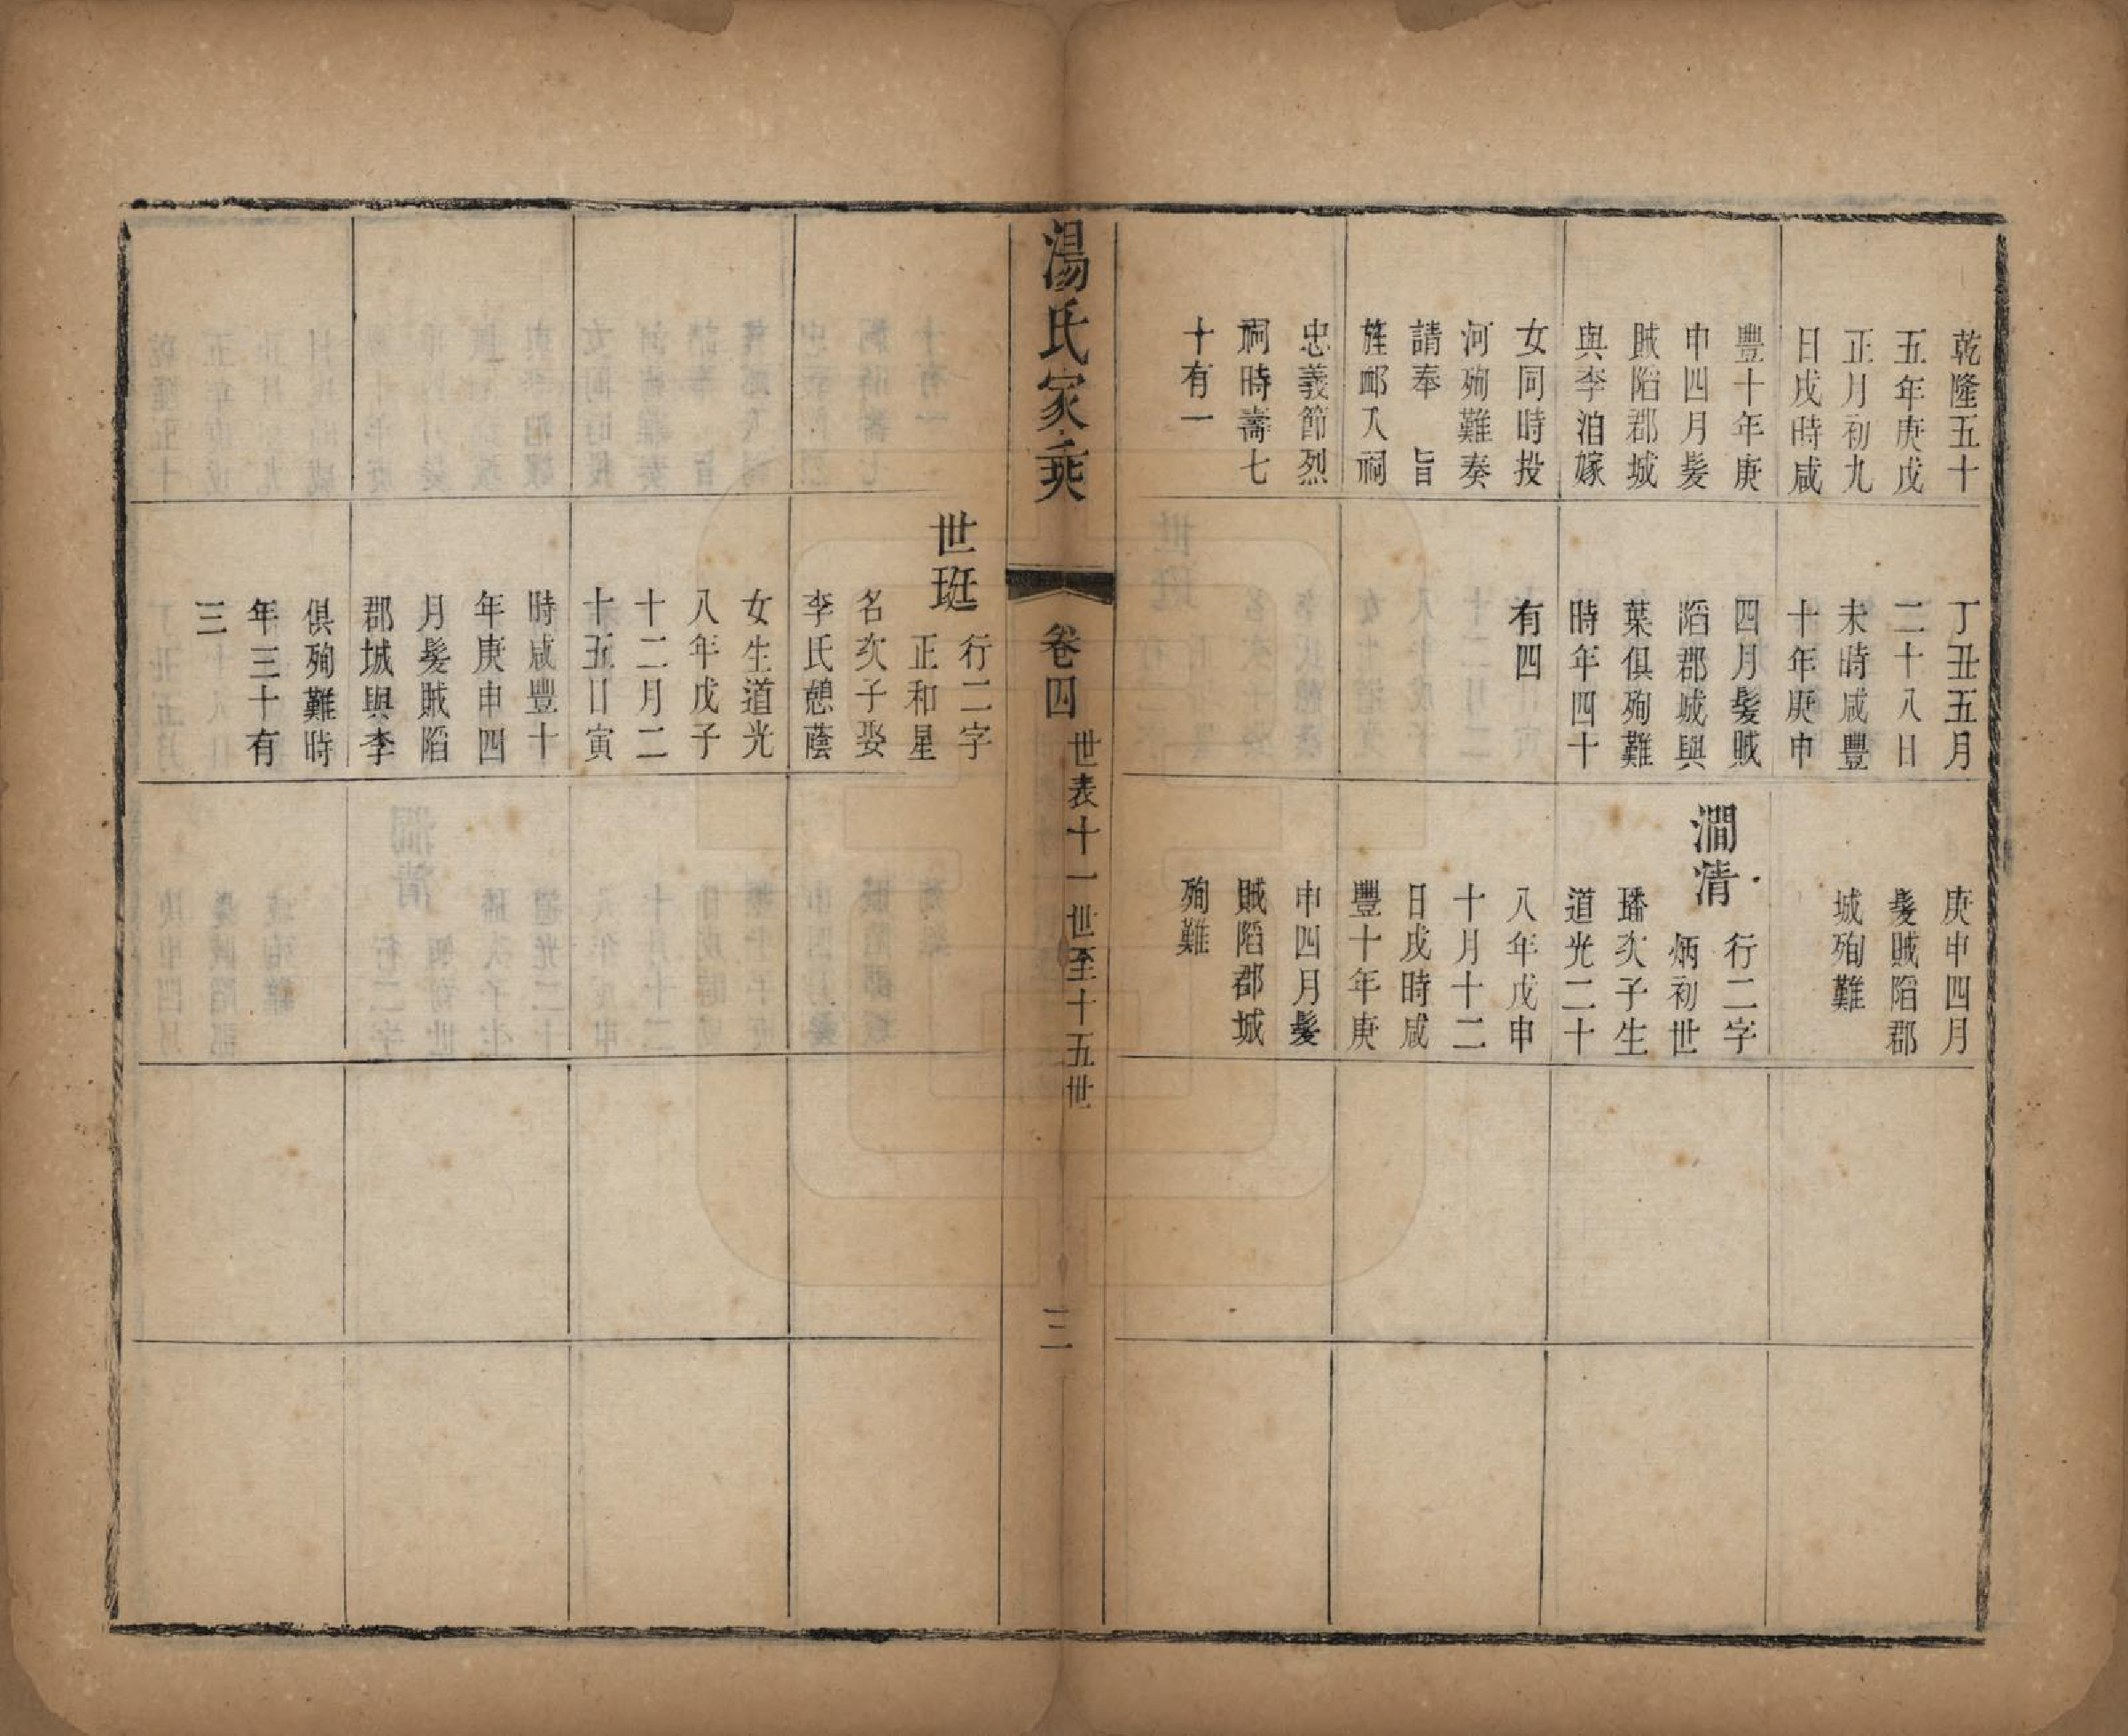 乾隆五十
五年庚戌
正月初九
日戌時咸
豐十年庚
申四月髮
賊陷郡城
與李泊嫁
女同時投
河殉難奏
請奉 旨
旌卹入祠
忠義節烈
祠時壽七
十有一
丁丑五月
二十八日
未時咸豐
十年庚申
四月髮賊
陷郡城與
葉俱殉難
時年四十
有四
庚申四月
髮賊陷郡
城殉難
澗清
行二字
炳初世
璠次子生
道光二十
八年戊申
十月十二
日戌時咸
豐十年庚
申四月髮
賊陷郡城
殉難
湯氏家乘
卷四
世表十一世至十五世
三
世珽
行二字
正和星
名次子娶
李氏憩蔭
女生道光
八年戊子
十二月二
十五日寅
時咸豐十
年庚申四
月髮賊陷
郡城與李
俱殉難時
年三十有
三